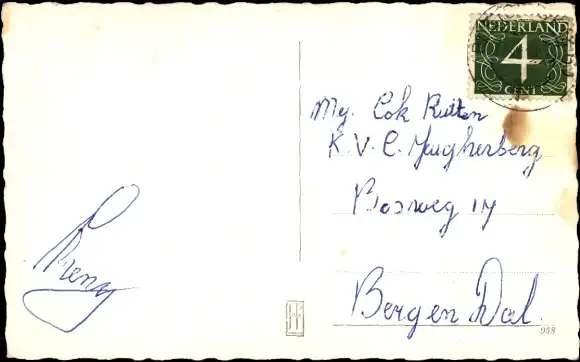 NEDERLAND
4
CENT
Mej. Cok Rutten
K. V. C. Jeugherberg
Bosweg 14
Bergen Dal.
Reny
958